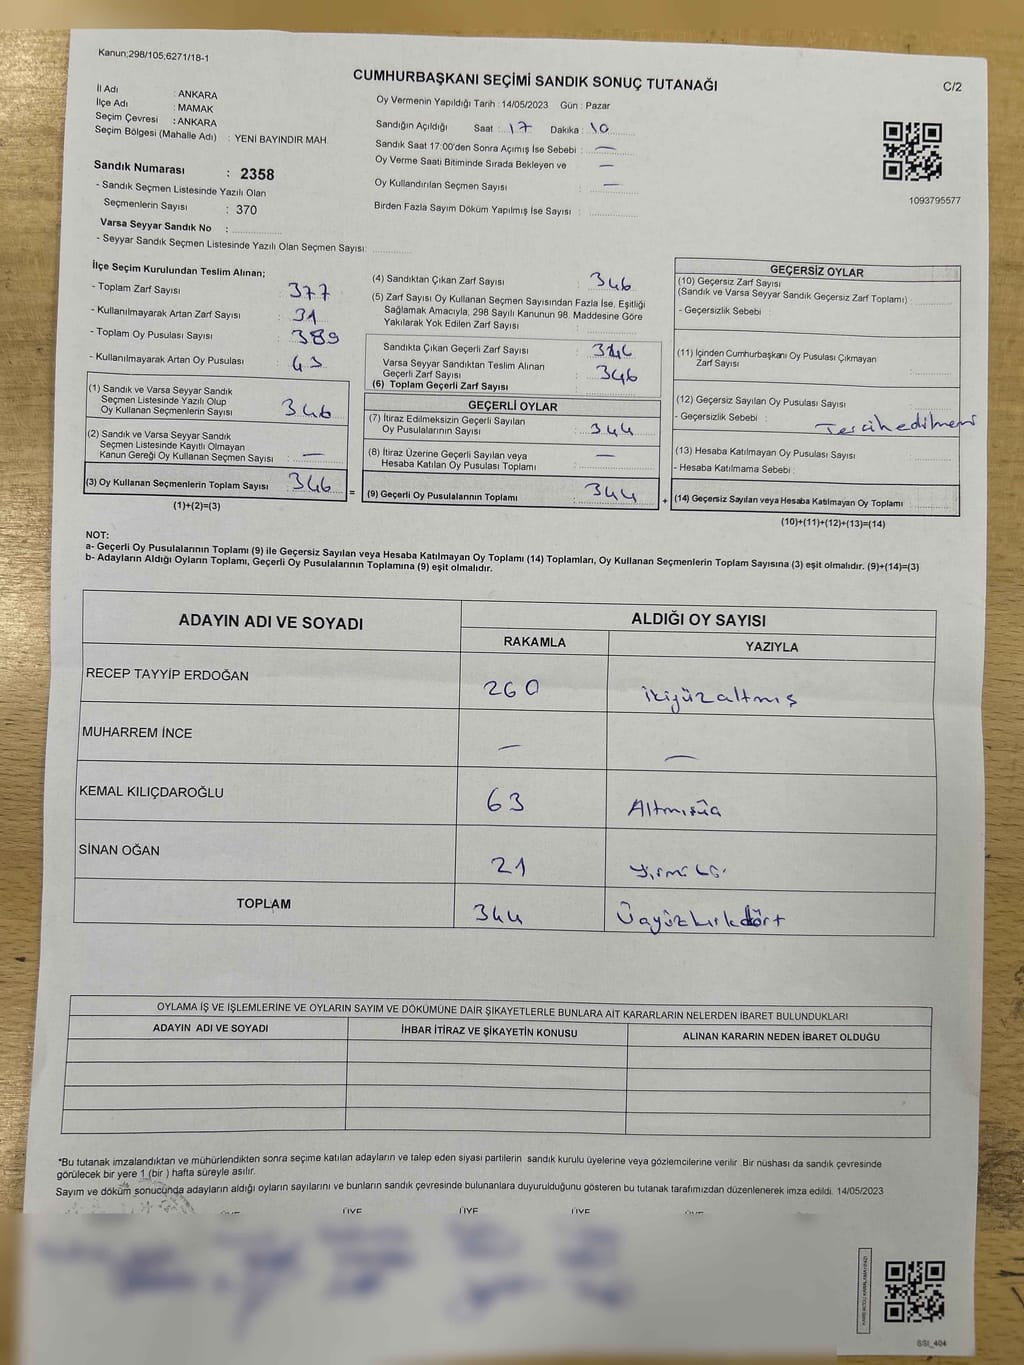 Kanun;298/105;6271/18-1
CUMHURBAŞKANI SEÇİMİ SANDIK SONUÇ TUTANAĞI
C/2
İl Adı : ANKARA
İlçe Adı : MAMAK
Seçim Çevresi : ANKARA
Seçim Bölgesi (Mahalle Adı) : YENİ BAYINDIR MAH.
Oy Vermenin Yapıldığı Tarih : 14/05/2023 Gün : Pazar
Sandığın Açıldığı Saat : 17 Dakika : 10
Sandık Saat 17:00'den Sonra Açımış İse Sebebi : —
Oy Verme Saati Bitiminde Sırada Bekleyen ve —
Oy Kullandırılan Seçmen Sayısı : —
Birden Fazla Sayım Döküm Yapılmış İse Sayısı :
1093795577
Sandık Numarası : 2358
- Sandık Seçmen Listesinde Yazılı Olan
Seçmenlerin Sayısı : 370
Varsa Seyyar Sandık No :
- Seyyar Sandık Seçmen Listesinde Yazılı Olan Seçmen Sayısı:
İlçe Seçim Kurulundan Teslim Alınan;
- Toplam Zarf Sayısı : 377
- Kullanılmayarak Artan Zarf Sayısı : 31
- Toplam Oy Pusulası Sayısı : 389
- Kullanılmayarak Artan Oy Pusulası : 43
(1) Sandık ve Varsa Seyyar Sandık
Seçmen Listesinde Yazılı Olup
Oy Kullanan Seçmenlerin Sayısı : 346
(2) Sandık ve Varsa Seyyar Sandık
Seçmen Listesinde Kayıtlı Olmayan
Kanun Gereği Oy Kullanan Seçmen Sayısı : —
(3) Oy Kullanan Seçmenlerin Toplam Sayısı : 346 =
(1)+(2)=(3)
(4) Sandıktan Çıkan Zarf Sayısı : 346
(5) Zarf Sayısı Oy Kullanan Seçmen Sayısından Fazla İse, Eşitliği
Sağlamak Amacıyla, 298 Sayılı Kanunun 98. Maddesine Göre
Yakılarak Yok Edilen Zarf Sayısı :
Sandıkta Çıkan Geçerli Zarf Sayısı : 346
Varsa Seyyar Sandıktan Teslim Alınan
Geçerli Zarf Sayısı : 346
(6) Toplam Geçerli Zarf Sayısı :
GEÇERLİ OYLAR
(7) İtiraz Edilmeksizin Geçerli Sayılan
Oy Pusulalarının Sayısı : 344
(8) İtiraz Üzerine Geçerli Sayılan veya
Hesaba Katılan Oy Pusulası Toplamı : —
(9) Geçerli Oy Pusulalarının Toplamı : 344 +
GEÇERSİZ OYLAR
(10) Geçersiz Zarf Sayısı
(Sandık ve Varsa Seyyar Sandık Geçersiz Zarf Toplamı) :
- Geçersizlik Sebebi :
(11) İçinden Cumhurbaşkanı Oy Pusulası Çıkmayan
Zarf Sayısı :
(12) Geçersiz Sayılan Oy Pusulası Sayısı :
- Geçersizlik Sebebi :
(13) Hesaba Katılmayan Oy Pusulası Sayısı :
- Hesaba Katılmama Sebebi :
(14) Geçersiz Sayılan veya Hesaba Katılmayan Oy Toplamı :
(10)+(11)+(12)+(13)=(14)
NOT:
a- Geçerli Oy Pusulalarının Toplamı (9) ile Geçersiz Sayılan veya Hesaba Katılmayan Oy Toplamı (14) Toplamları, Oy Kullanan Seçmenlerin Toplam Sayısına (3) eşit olmalıdır. (9)+(14)=(3)
b- Adayların Aldığı Oyların Toplamı, Geçerli Oy Pusulalarının Toplamına (9) eşit olmalıdır.
ADAYIN ADI VE SOYADI
ALDIĞI OY SAYISI
RAKAMLA YAZIYLA
RECEP TAYYİP ERDOĞAN 260 ikiyüzaltmış
MUHARREM İNCE — —
KEMAL KILIÇDAROĞLU 63 Altmışüç
SİNAN OĞAN 21
TOPLAM 344 Üçyüzkırkdört
OYLAMA İŞ VE İŞLEMLERİNE VE OYLARIN SAYIM VE DÖKÜMÜNE DAİR ŞİKAYETLERLE BUNLARA AİT KARARLARIN NELERDEN İBARET BULUNDUKLARI
ADAYIN ADI VE SOYADI İHBAR İTİRAZ VE ŞİKAYETİN KONUSU ALINAN KARARIN NEDEN İBARET OLDUĞU
*Bu tutanak imzalandıktan ve mühürlendikten sonra seçime katılan adayların ve talep eden siyasi partilerin sandık kurulu üyelerine veya gözlemcilerine verilir. Bir nüshası da sandık çevresinde
görülecek bir yere 1 (bir ) hafta süreyle asılır.
Sayım ve döküm sonucunda adayların aldığı oyların sayılarını ve bunların sandık çevresinde bulunanlara duyurulduğunu gösteren bu tutanak tarafımızdan düzenlenerek imza edildi. 14/05/2023
ÜYE ÜYE ÜYE ÜYE ÜYE
SSI_404